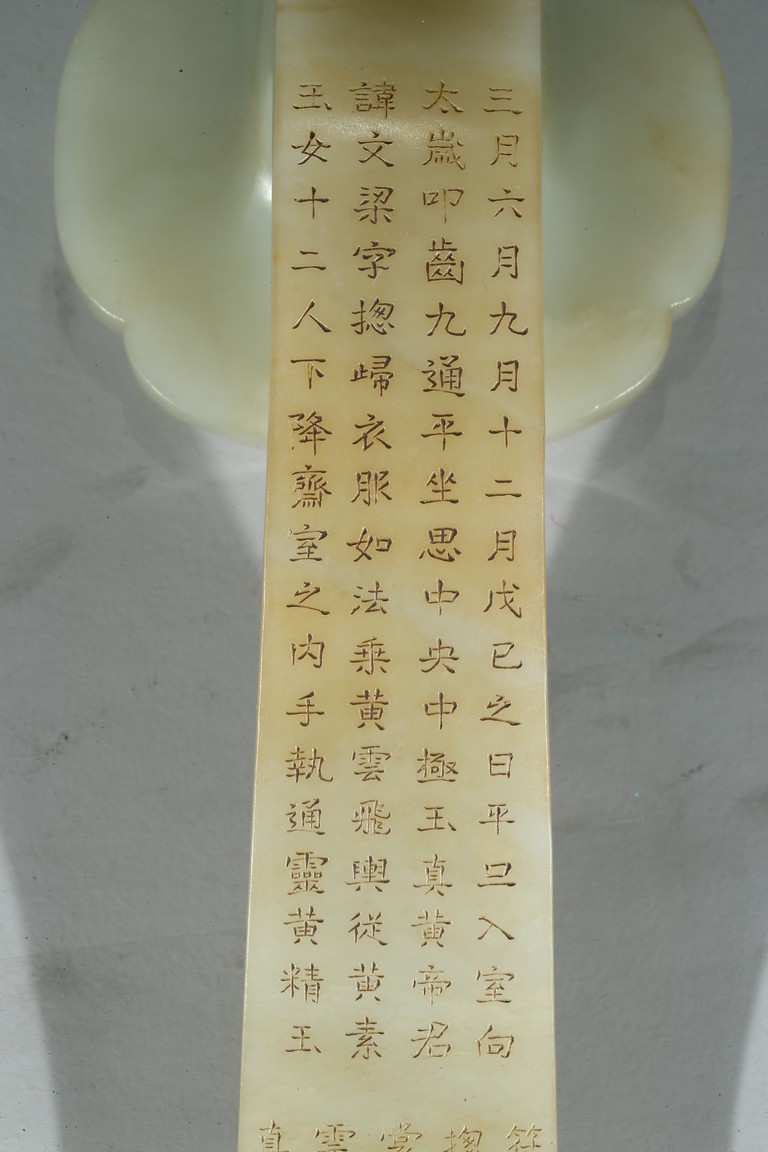 三月六月九月十二月戊己之日平旦入室向
太歲叩齒九通平坐思中央中極玉真黃帝君
諱文梁字揔歸衣服如法乘黃雲飛輿從黃素
玉女十二人下降齋室之内手執通靈黃精玉
符揔常雲真